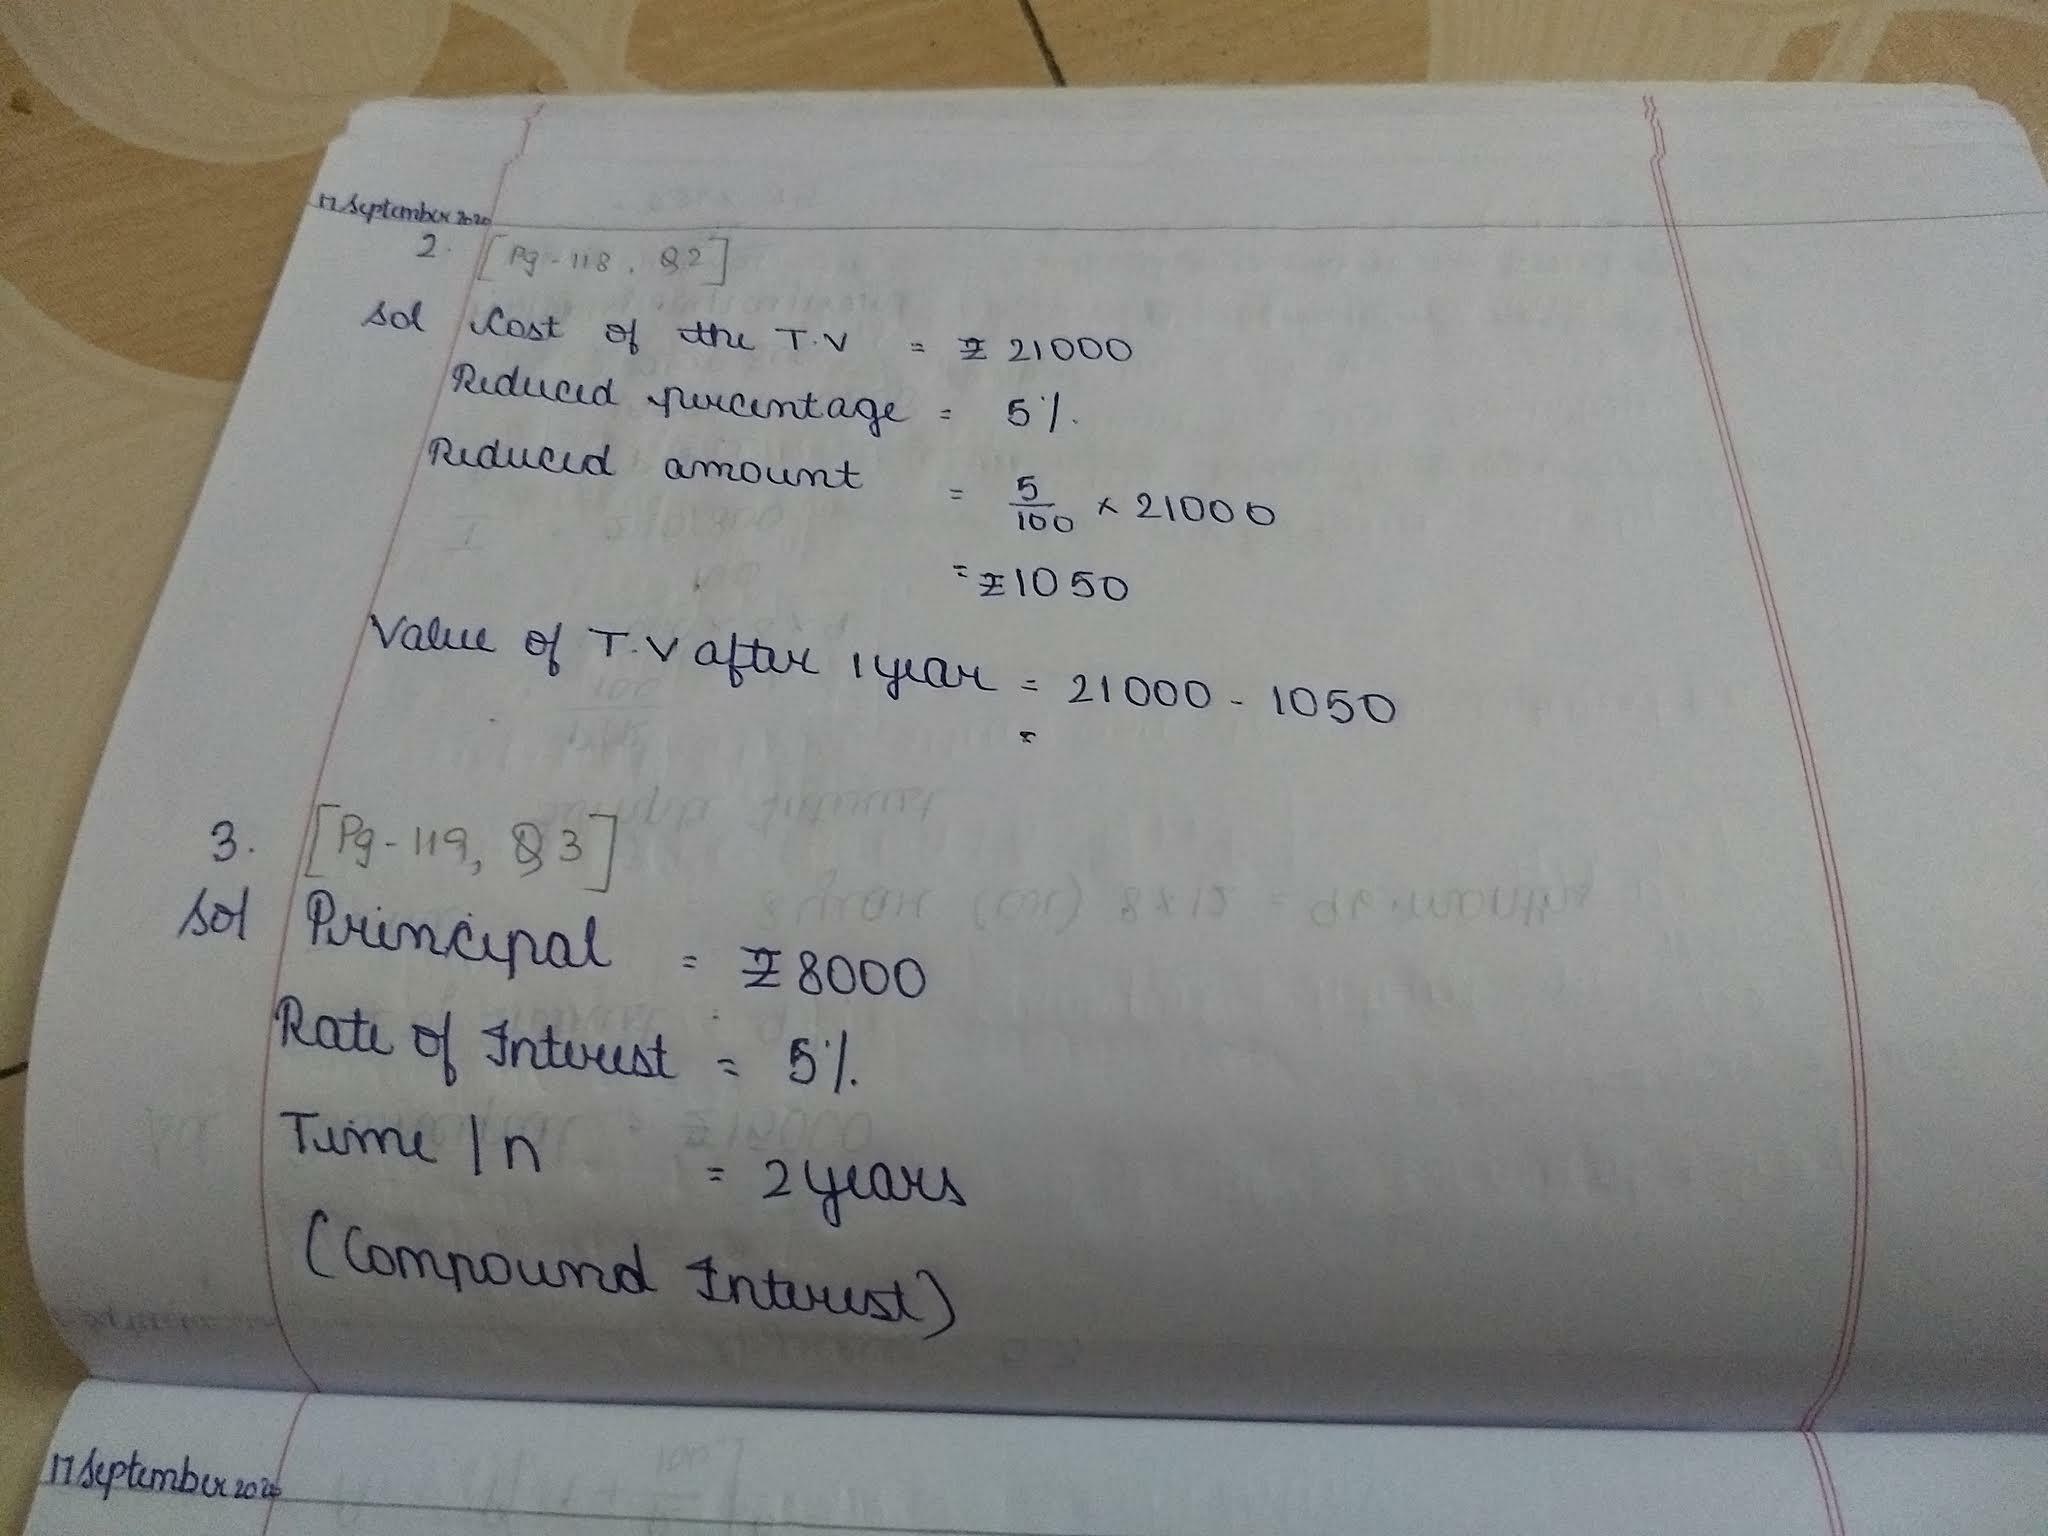 17 September 2020
2. [Pg-118, Q2]
Sol Cost of the T.V = ₹ 21000
Reduced percentage = 5%.
Reduced amount = 5/100 × 21000
= ₹1050
Value of T.V after 1 year = 21000 - 1050
=
3. [Pg-119, Q3]
Sol Principal = ₹8000
Rate of Interest = 5%.
Time / n = 2 years
(Compound Interest)
17 September 2020